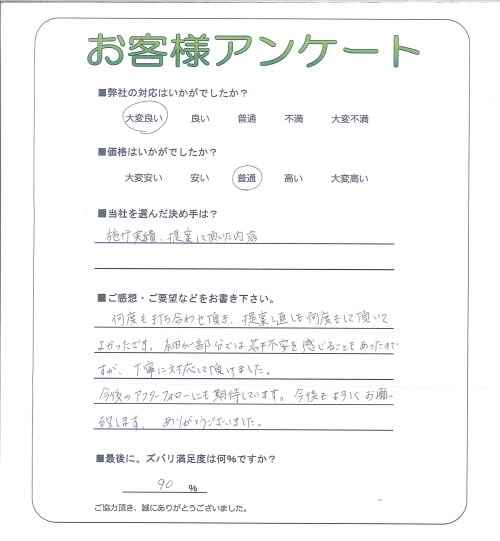 お客様アンケート
■弊社の対応はいかがでしたか？
大変良い 良い 普通 不満 大変不満
■価格はいかがでしたか？
大変安い 安い 普通 高い 大変高い
■当社を選んだ決め手は？
施行実績、提案して頂いた内容
■ご感想・ご要望などをお書き下さい。
何度も打ち合わせ頂き、提案し直しも何度もして頂いて
よかったです。細かい部分では若干不安を感じることもあったので
すが、丁寧に対応して頂けました。
今後のアフターフォローにも期待しています。今後もよろしくお願い
致します。 ありがとうございました。
■最後に、ズバリ満足度は何%ですか？
90 %
ご協力頂き、誠にありがとうございました。